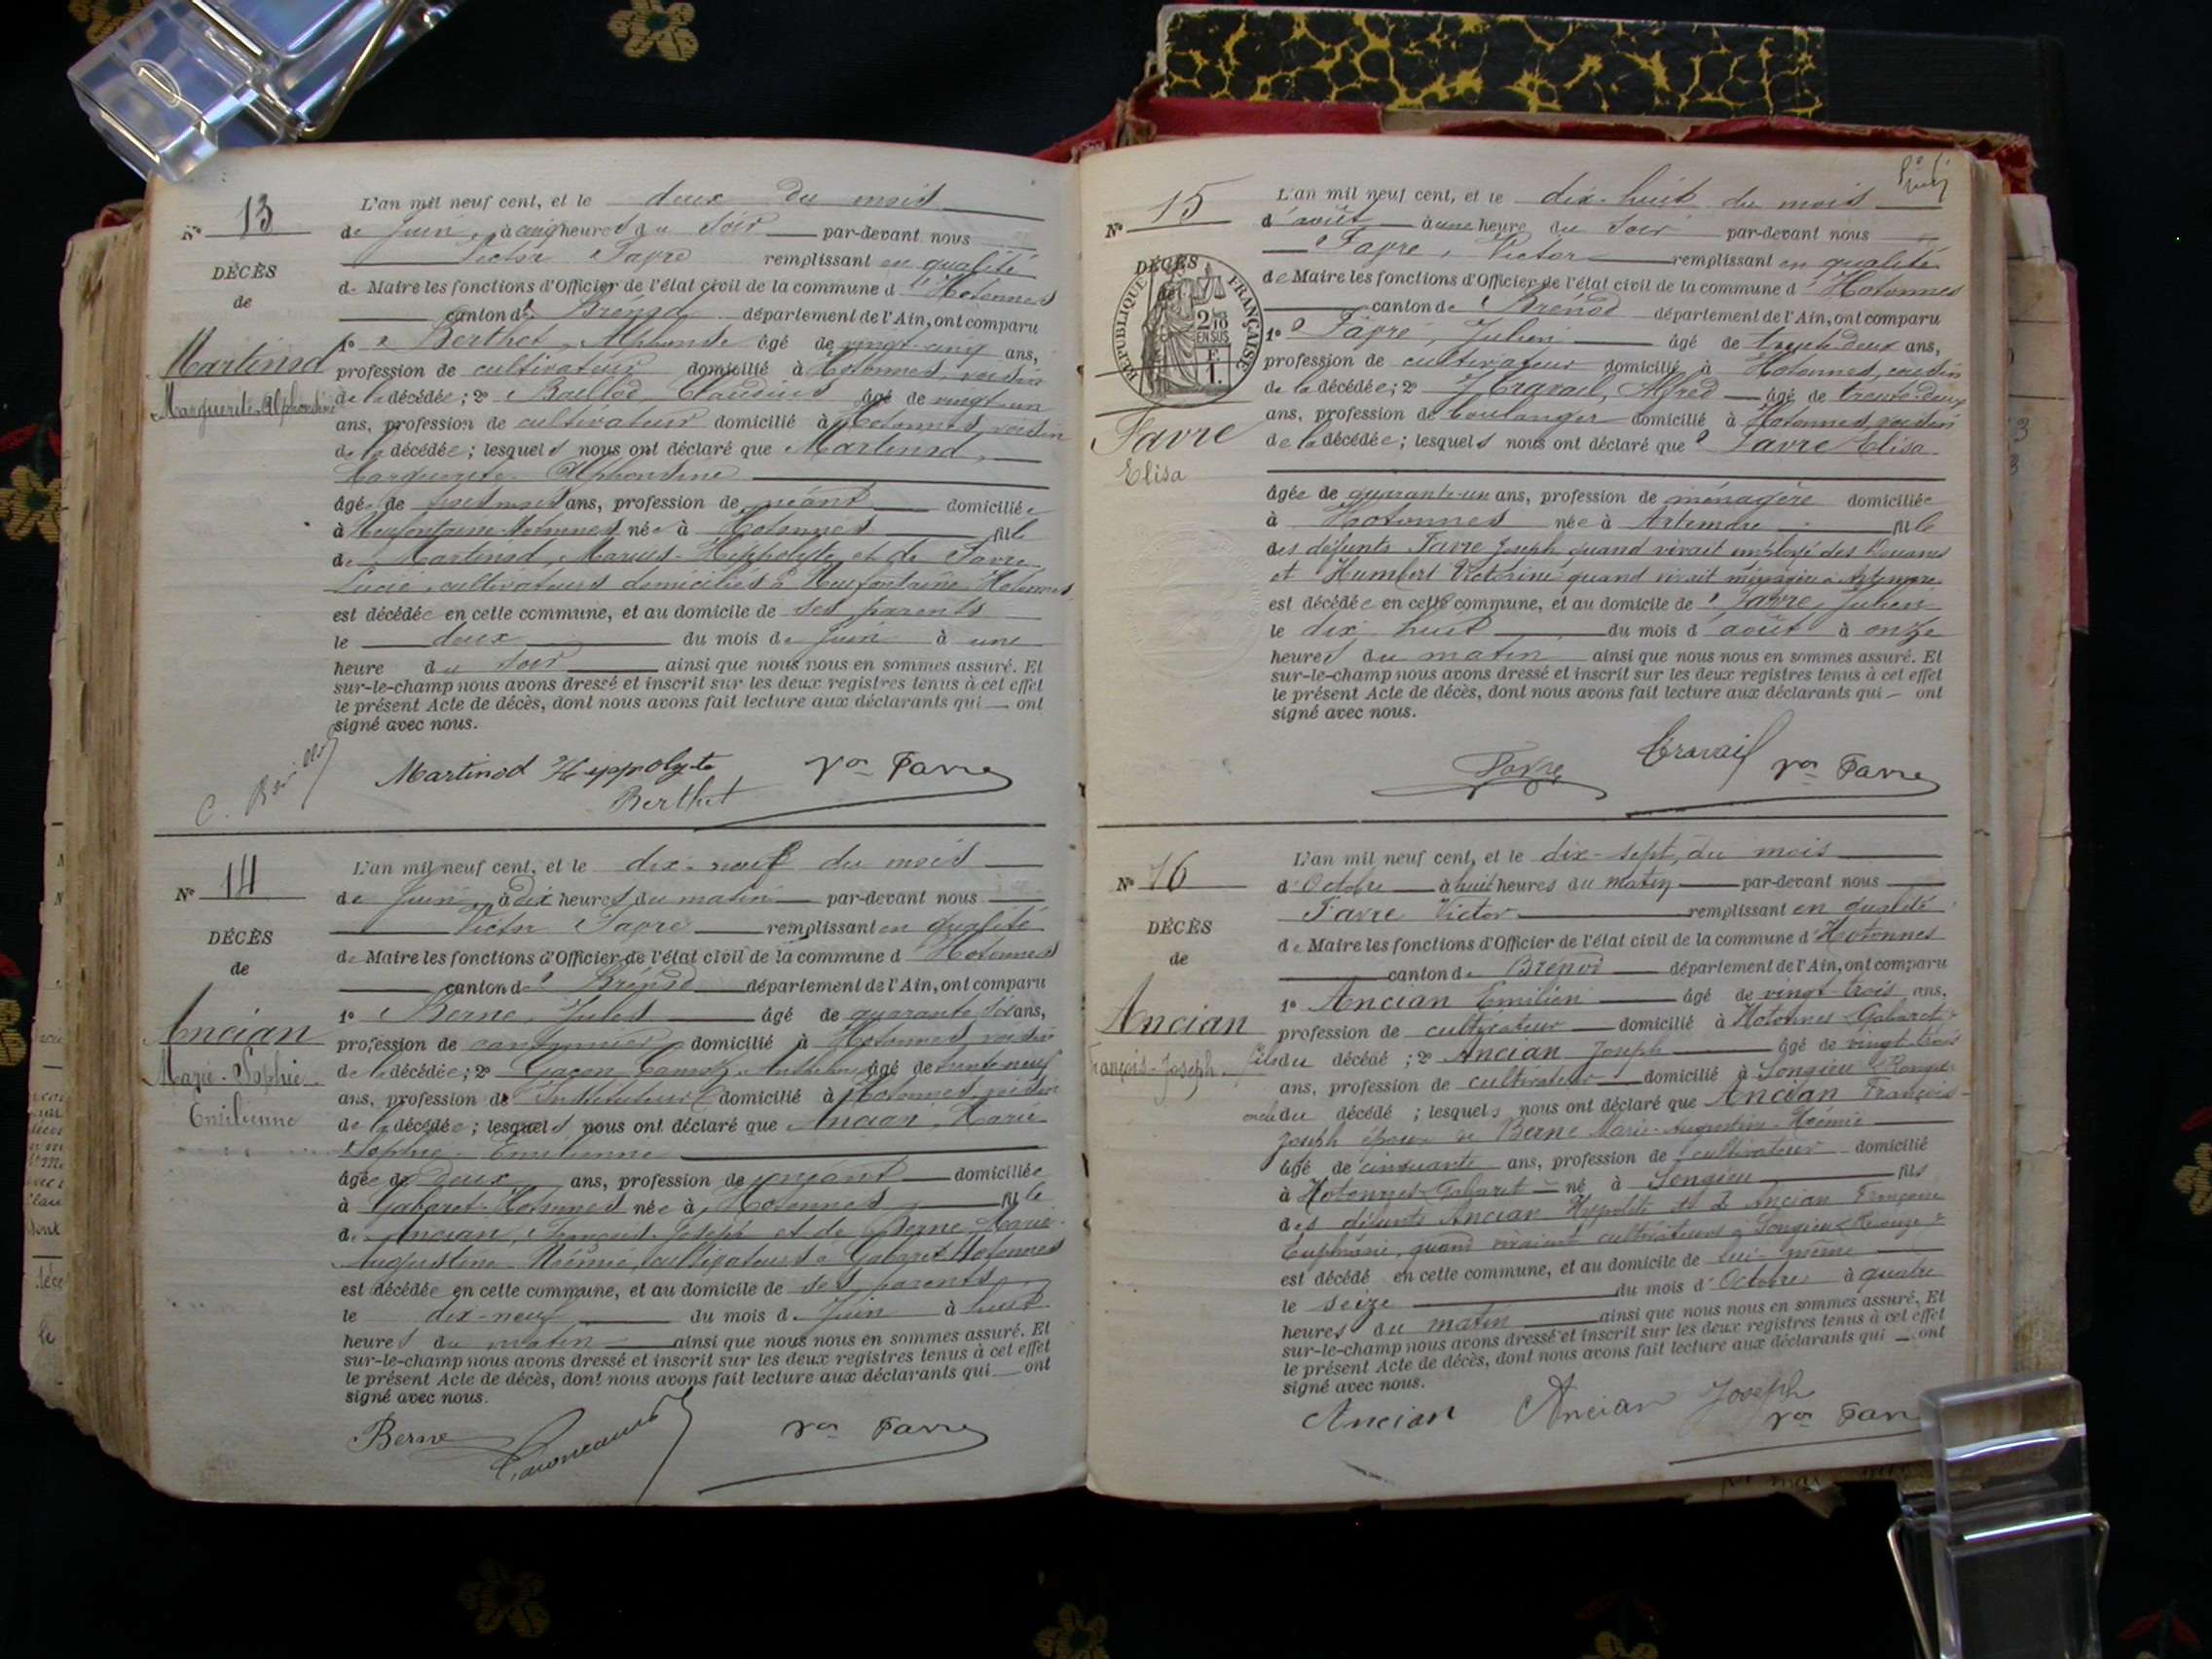 N° 13
DÉCÈS
de
Martinod
Marguerite Alphonsine
L'an mil neuf cent, et le deux du mois
de Juin, à cinq heures du soir par-devant nous
Victor Favre remplissant en qualité
de Maire les fonctions d'Officier de l'état civil de la commune d'Hotonnes
canton de Brénod département de l'Ain, ont comparu
1° Berthet, Alphonse âgé de vingt-cinq ans,
profession de cultivateur domicilié à Hotonnes, voisin
de la décédée; 2° Claudius âgé de vingt-un
ans, profession de cultivateur domicilié à Hotonnes, voisin
de la décédée; lesquels nous ont déclaré que Martinod,
Marguerite Alphonsine
âgée de ans, profession de néant domiciliée
à Neufontaine-Hotonnes née à Hotonnes fille
de Martinod, Marius-Hippolyte et de Favre
Lucie, cultivateurs domiciliés à Neufontaine Hotonnes
est décédée en cette commune, et au domicile de ses parents
le deux du mois de Juin à une
heure du soir ainsi que nous nous en sommes assuré. Et
sur-le-champ nous avons dressé et inscrit sur les deux registres tenus à cet effet
le présent Acte de décès, dont nous avons fait lecture aux déclarants qui ont
signé avec nous.
Martinod Hippolyte Vor Favre
Berthet
N° 14
DÉCÈS
de
Ancian
Marie-Sophie
Emilienne
L'an mil neuf cent, et le dix-neuf du mois
de Juin, à dix heures du matin par-devant nous
Victor Favre remplissant en qualité
de Maire les fonctions d'Officier de l'état civil de la commune d'Hotonnes
canton de Brénod département de l'Ain, ont comparu
1° Berne, Jules âgé de quarante six ans,
profession de cantonnier domicilié à Hotonnes, voisin
de la décédée; 2° âgé de trente-neuf
ans, profession de Instituteur domicilié à Hotonnes, voisin
de la décédée; lesquels nous ont déclaré que Ancian, Marie
Sophie Emilienne
âgée de deux ans, profession de domiciliée
à Gabaret-Hotonnes née à Hotonnes fille
de Ancian, François-Joseph et de Berne, Marie-
Augustine Noémie, cultivateurs à Gabaret Hotonnes
est décédée en cette commune, et au domicile de ses parents
le dix-neuf du mois de Juin à huit
heures du matin ainsi que nous nous en sommes assuré. Et
sur-le-champ nous avons dressé et inscrit sur les deux registres tenus à cet effet
le présent Acte de décès, dont nous avons fait lecture aux déclarants qui ont
signé avec nous.
Berne Vor Favre
N° 15
DÉCÈS
de
RÉPUBLIQUE FRANÇAISE
2/10 EN SUS
Favre
Elisa
L'an mil neuf cent, et le dix-huit du mois
d'août à une heure du soir par-devant nous
Favre, Victor remplissant en qualité
de Maire les fonctions d'Officier de l'état civil de la commune d'Hotonnes
canton de Brénod département de l'Ain, ont comparu
1° Favre, Julien âgé de trente-deux ans,
profession de cultivateur domicilié à Hotonnes, cousin
de la décédée; 2° Travail, Alfred âgé de trente-deux
ans, profession de boulanger domicilié à Hotonnes voisin
de la décédée; lesquels nous ont déclaré que Favre Elisa
âgée de quarante-un ans, profession de ménagère domiciliée
à Hotonnes née à Artemare fille
des défunts Favre Joseph quand vivait employé des Douanes
et Humbert Victorine quand vivait ménagère à Artemare
est décédée en cette commune, et au domicile de Favre, Julien
le dix huit du mois d'août à onze
heures du matin ainsi que nous nous en sommes assuré. Et
sur-le-champ nous avons dressé et inscrit sur les deux registres tenus à cet effet
le présent Acte de décès, dont nous avons fait lecture aux déclarants qui ont
signé avec nous.
Favre Travail Vor Favre
N° 16
DÉCÈS
de
Ancian
François-Joseph
L'an mil neuf cent, et le dix-sept du mois
d'Octobre à huit heures du matin par-devant nous
Favre Victor remplissant en qualité
de Maire les fonctions d'Officier de l'état civil de la commune d'Hotonnes
canton de Brénod département de l'Ain, ont comparu
1° Ancian Emilien âgé de vingt-trois ans,
profession de cultivateur domicilié à Hotonnes Gabaret
fils du décédé; 2° Ancian Joseph âgé de vingt trois
ans, profession de cultivateur domicilié à Songieu
du décédé; lesquels nous ont déclaré que Ancian François-
Joseph époux de Berne Marie-Augustine-Noémie
âgé de cinquante ans, profession de cultivateur domicilié
à Hotonnes Gabaret né à Songieu fils
des défunts Ancian Hippolite et d'Ancian Françoise
Euphémie, quand vivaient cultivateurs à Songieu
est décédé en cette commune, et au domicile de lui-même
le seize du mois d'Octobre à quatre
heures du matin ainsi que nous nous en sommes assuré. Et
sur-le-champ nous avons dressé et inscrit sur les deux registres tenus à cet effet
le présent Acte de décès, dont nous avons fait lecture aux déclarants qui ont
signé avec nous.
Ancian Ancian Joseph
Vor Favre